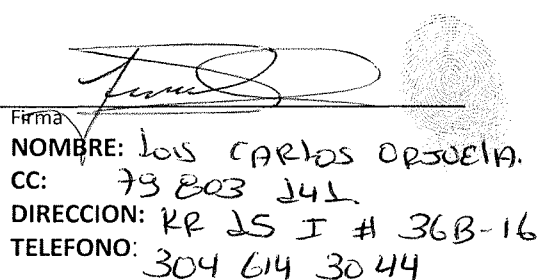 Firma
NOMBRE: LOIS CARLOS ORJUELA.
CC: 79 803 141
DIRECCION: KR 15 I # 36B-16
TELEFONO: 304 614 3044